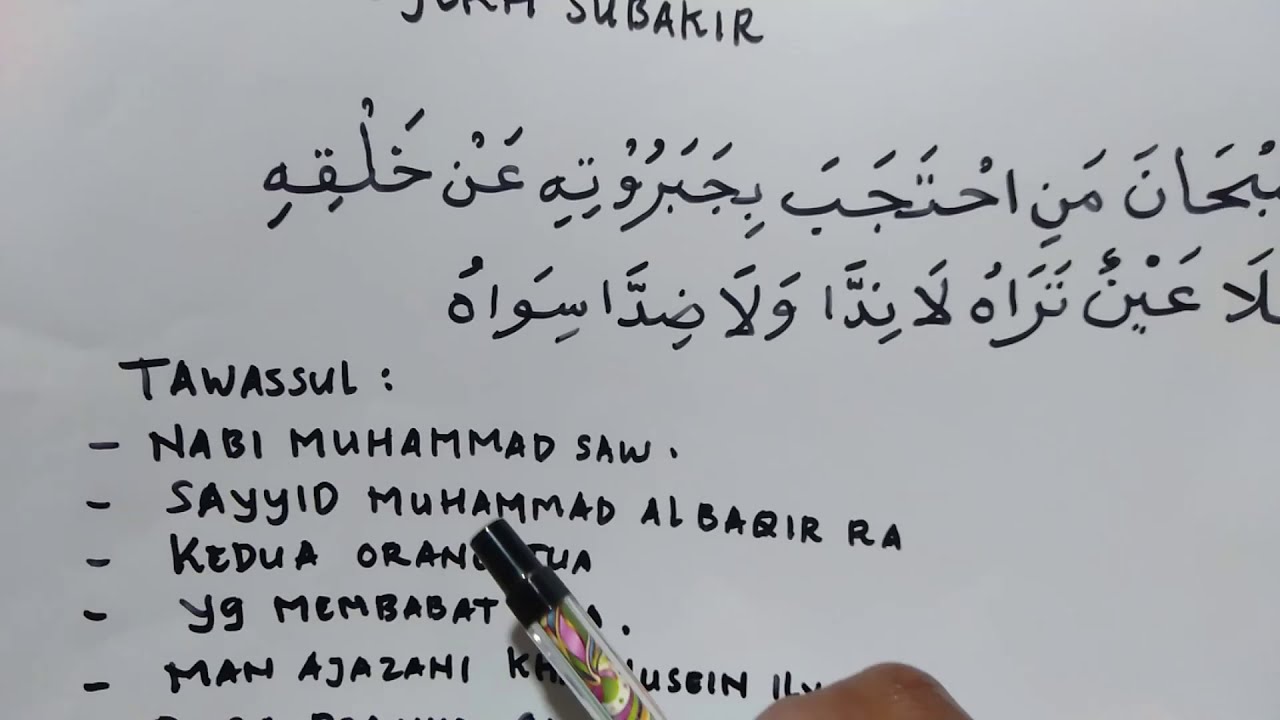 SUBAKIR
سُبْحَانَ مَنِ احْتَجَبَ بِجَبَرُوْتِهِ عَنْ خَلْقِهِ
فَلَا عَيْنٌ تَرَاهُ لَا نِدَّا وَلَا ضِدَّا سِوَاهُ
TAWASSUL :
- NABI MUHAMMAD SAW.
- SAYYID MUHAMMAD AL BAQIR RA
- KEDUA ORANG TUA
- Yg MEMBABAT
- MAN AJAZANI